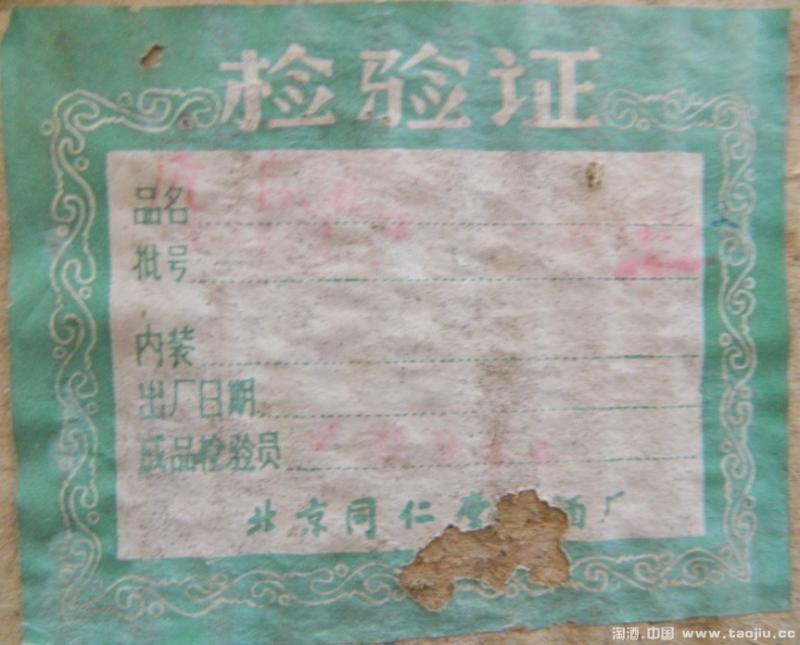 检验证
品名
批号
内装
出厂日期
成品检验员
北京同仁堂 酒厂
淘酒.中国 www.taojiu.cc